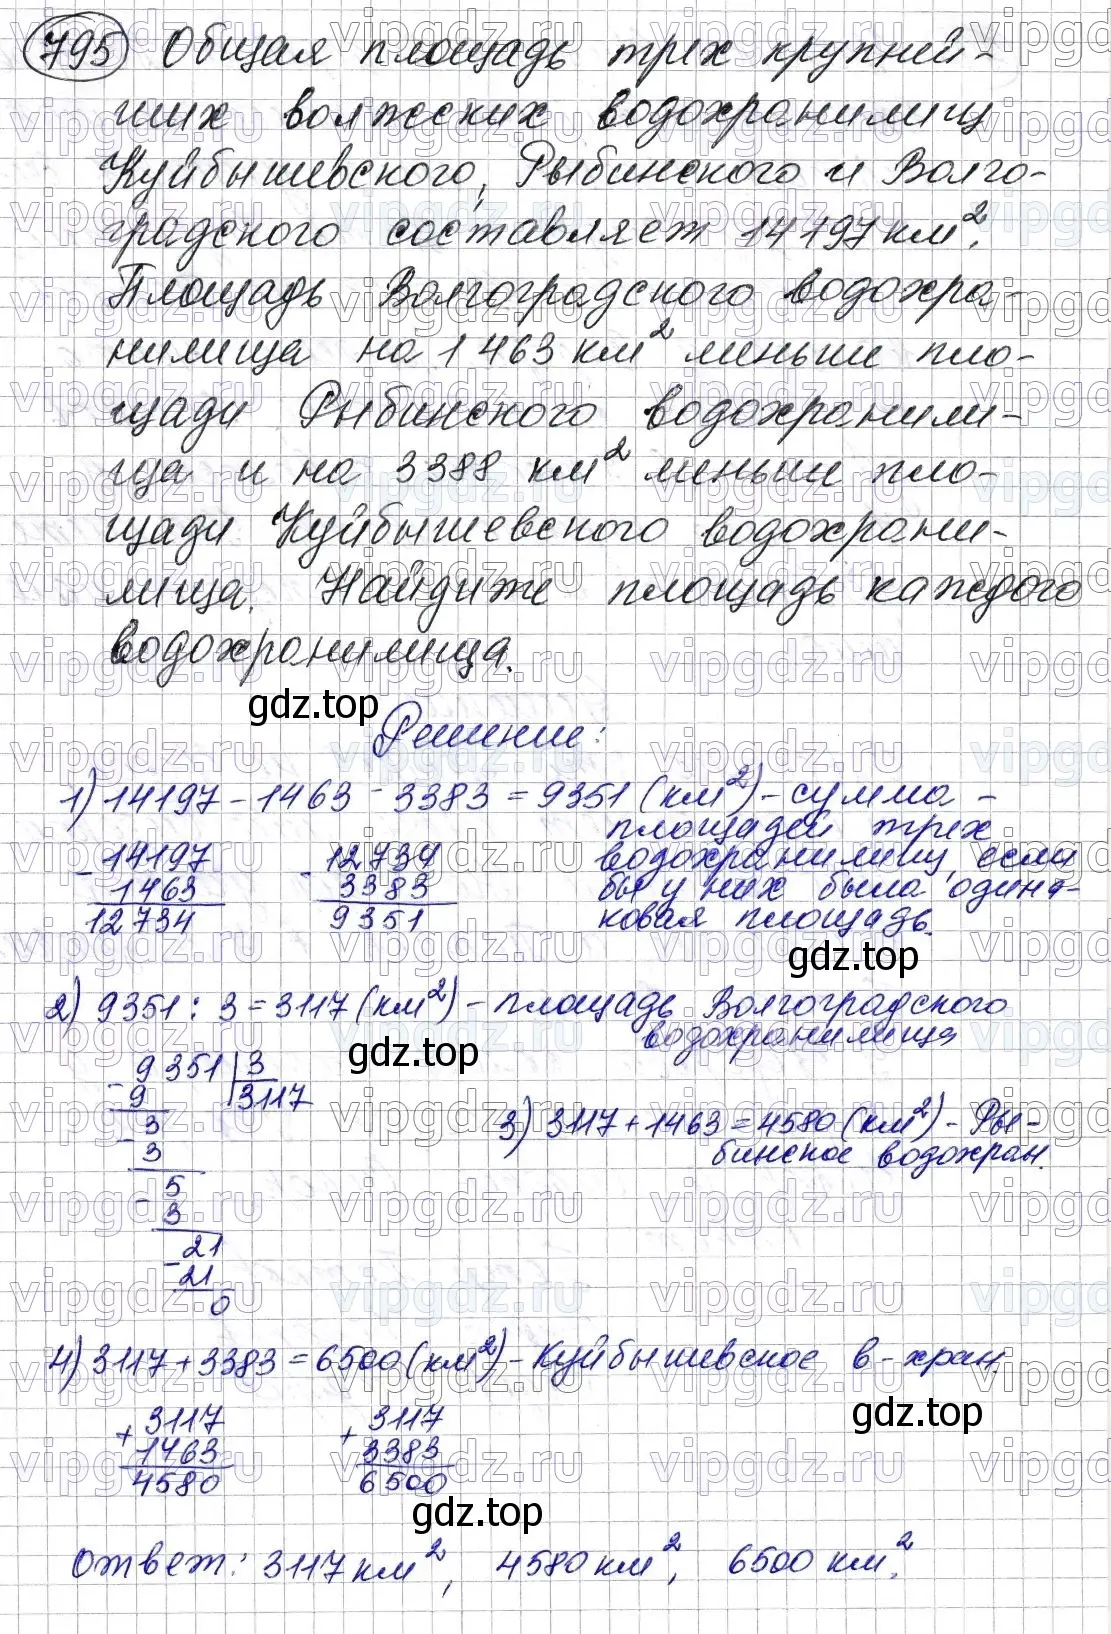 795 Общая площадь трех крупней-
ших волжских водохранилищ
Куйбышевского, Рыбинского и Волго-
градского составляет 14197 км².
Площадь Волгоградского водохра-
нилища на 1463 км² меньше пло-
щади Рыбинского водохранили-
ща и на 3388 км² меньше пло-
щади Куйбышевского водохрани-
лища. Найдите площадь каждого
водохранилища.
gdz.top
Решение:
1) 14197 - 1463 - 3383 = 9351 (км²) - сумма -
площадей трех
водохранилищ, если
бы у них была одина-
ковая площадь.
- 14197
1463
12734
- 12734
3383
9351
gdz.top
2) 9351 : 3 = 3117 (км²) - площадь Волгоградского
водохранилища
gdz.top
- 9351 3
9 3117
3
- 3
5
- 3
21
- 21
0
3) 3117 + 1463 = 4580 (км²) - Ры-
бинское водохран.
4) 3117 + 3383 = 6500 (км²) - Куйбышевское в-хран.
gdz.top
+ 3117
1463
4580
+ 3117
3383
6500
gdz.top
Ответ: 3117 км², 4580 км², 6500 км².
vipgdz.ru